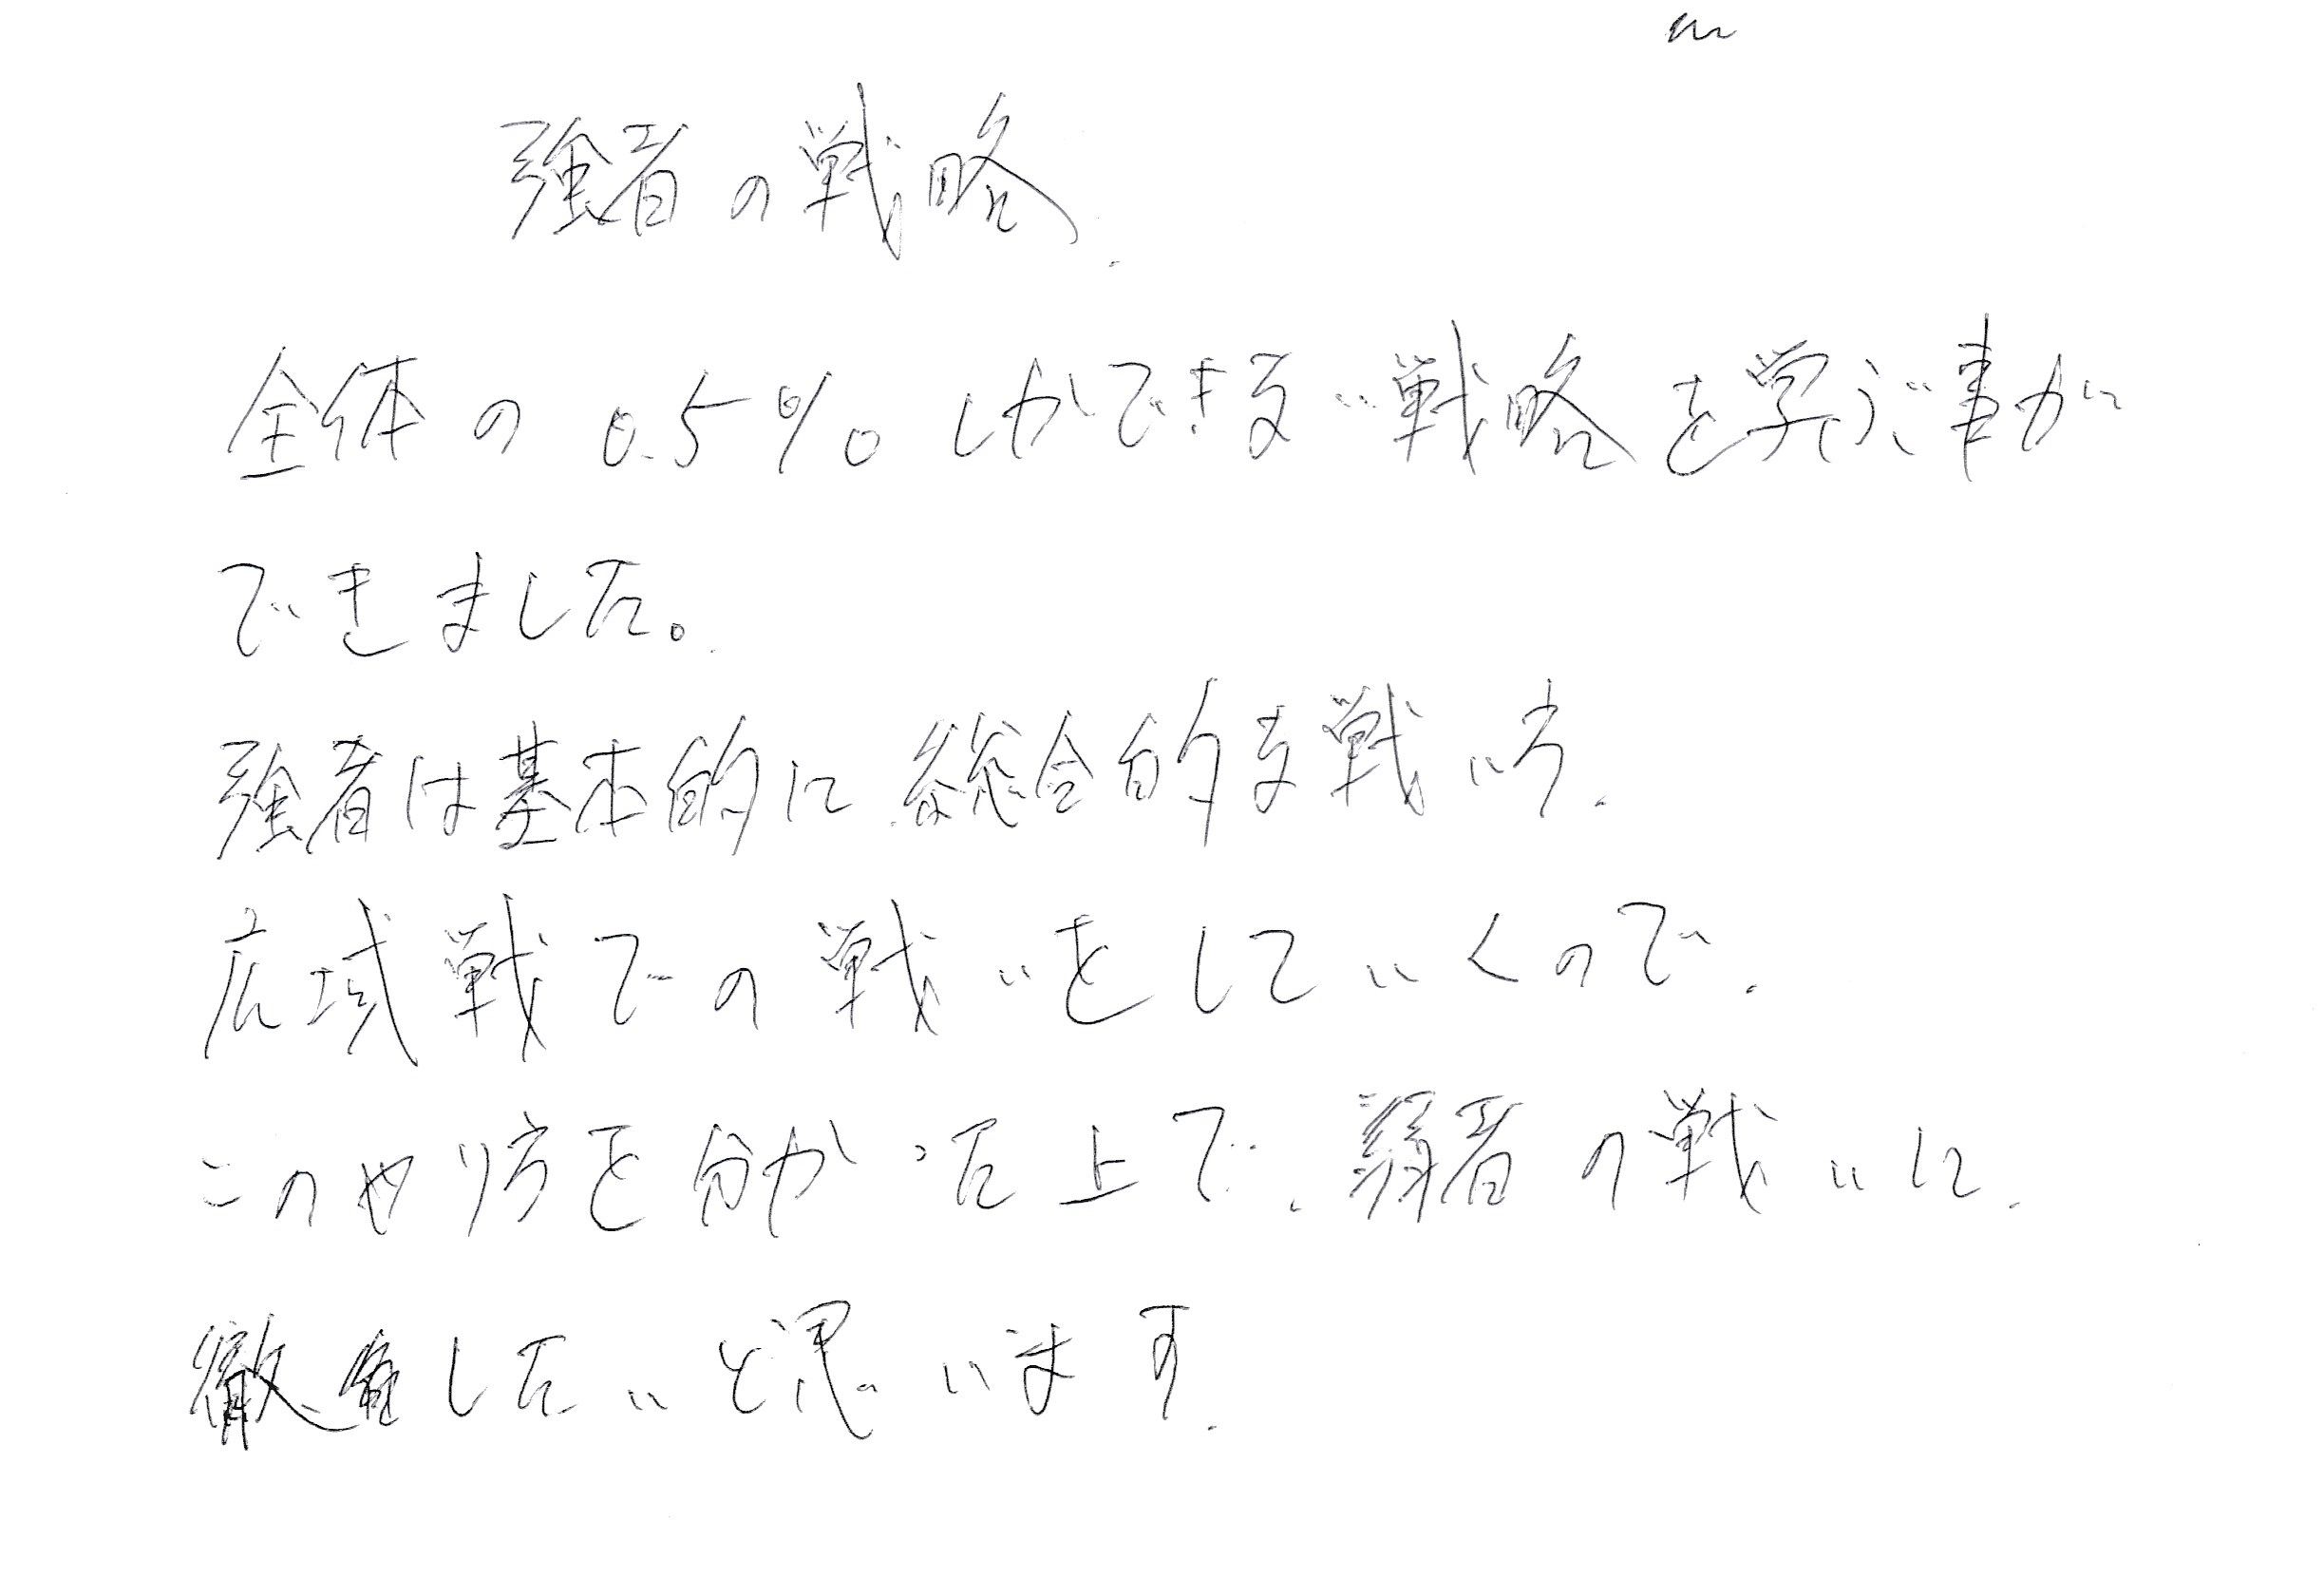 強者の戦略
全体の0.5%しかできない戦略を学ぶ事が
できました。
強者は基本的に総合的な戦い方、
広域戦での戦いをしていくので、
このやり方を分かった上で、弱者の戦いに、
徹底したいと思います。